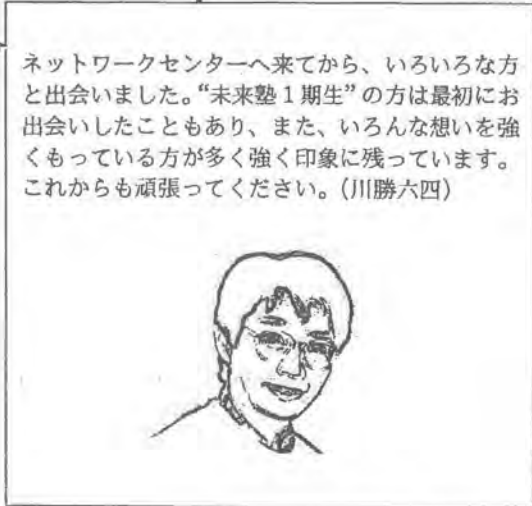 ネットワークセンターへ来てから、いろいろな方
と出会いました。“未来塾1期生”の方は最初にお
出会いしたこともあり、また、いろんな想いを強
くもっている方が多く強く印象に残っています。
これからも頑張ってください。(川勝六四)